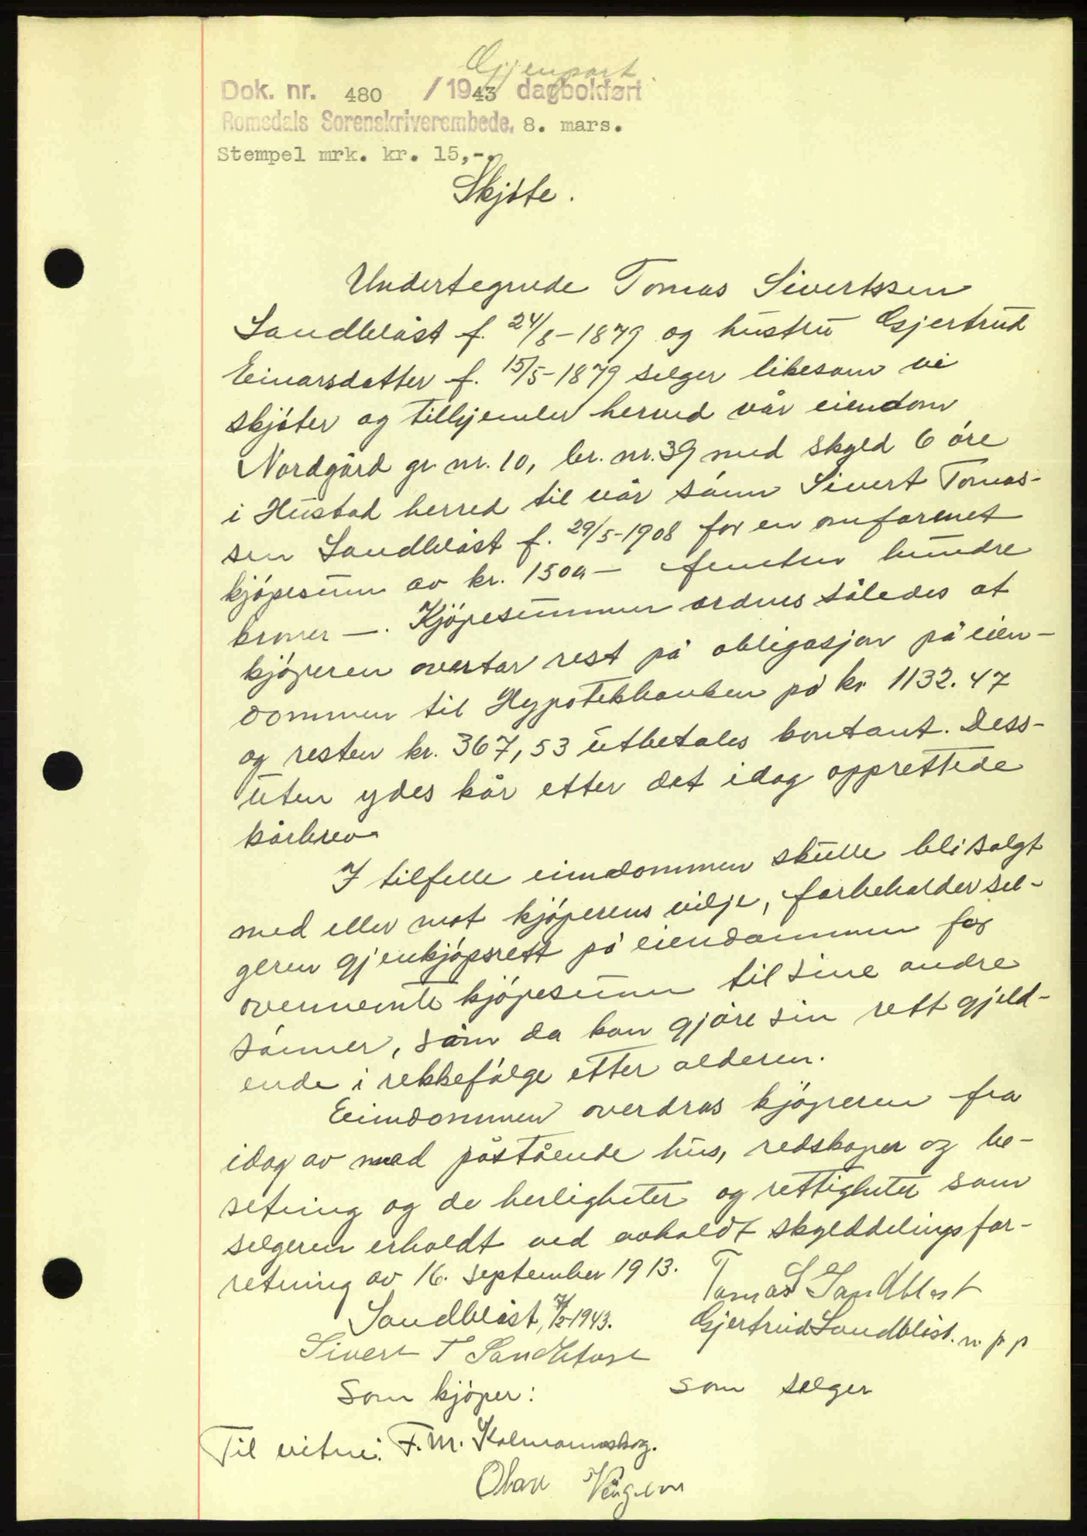 Gjenpart
Dok. nr. 480 / 1943 dagbokført
Romsdals Sorenskriverembede, 8. mars.
Stempel mrk. kr. 15,-.
Skjøte.
Undertegnede Tomas Sivertssen
Sandblåst f. 24/8-1879 og hustru Gjertrud
Einarsdatter f. 15/5-1879 selger likesom vi
skjøter og tilhjemler herved vår eiendom
Nordgård gr. nr. 10, br. nr. 39 med skyld 6 øre
i Hustad herred til vår sønn Sivert Tomas-
sen Sandblåst f. 29/5-1908 for en omforenet
kjøpesum av kr. 1500 - femten hundre
kroner -. Kjøpesummen ordnes således at
kjøperen overtar rest på obligasjon på eien-
dommen til Hypotekbanken på kr 1132.47
og resten kr. 367,53 utbetales kontant. Dess-
uten ydes kår etter det idag opprettede
kårbrev
I tilfelle eiendommen skulle bli solgt
med eller mot kjøperens vilje, forbeholder sel-
geren gjenkjøpsrett på eiendommen for
ovennemte kjøpesum til sine andre
sønner, som da kan gjøre sin rett gjeld-
ende i rekkefølge etter alderen.
Eiendommen overdras kjøperen fra
idag av med påstående hus, redskaper og be-
setning og de herligheter og rettigheter som
selgeren erholdt ved avholdt skylddelingsfor-
retning av 16. september 1913.
Tomas S Sandblåst
Sandblåst, 1943.
Gjertrud Sandblåst. m p p
Sivert T Sandblåst
som kjøper:
som selger
Til vitne: F. M.
Olav